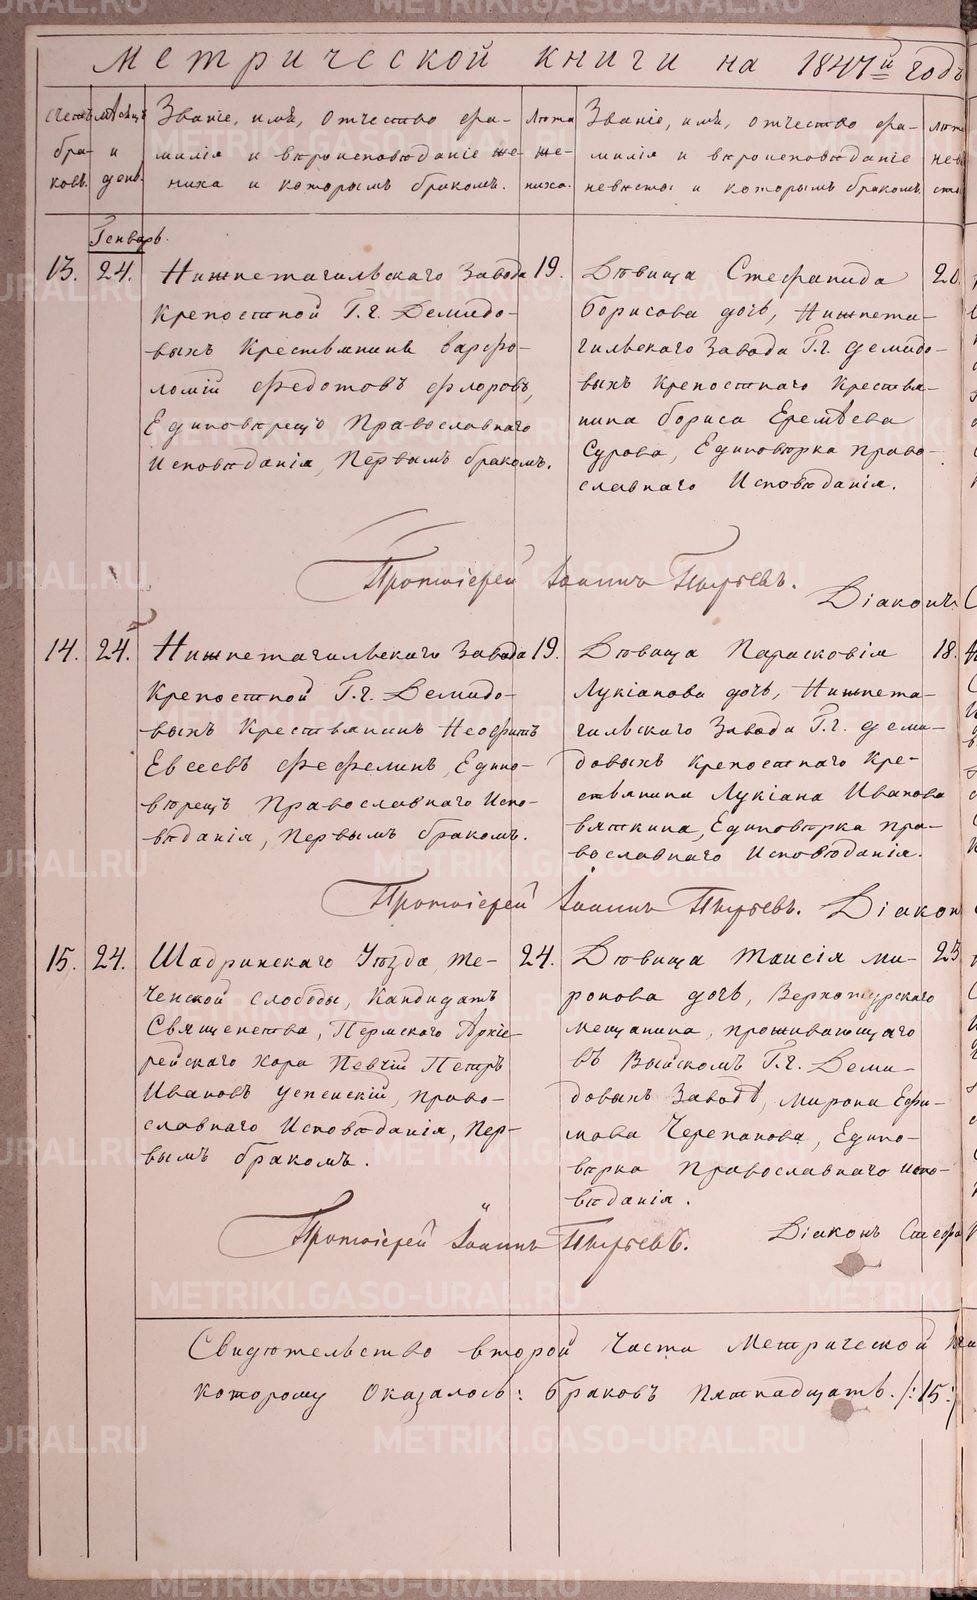 Метрической книги на 1847й годъ
Счетъ бра- ковъ.
Мѣсяцъ и день.
Званіе, имѣ, отчество фа-
милія и вѣроисповѣданіе же-
ниха и которымъ бракомъ.
Лѣта же- ниха.
Званіе, имѣ, отчество фа-
милія и вѣроисповѣданіе
невѣсты и которымъ бракомъ.
Генварь.
13.
24.
Нижнетагильскаго Завода
крепостной Г.г. Демидо-
выхъ Крестьянинъ Варфо-
ломій Федотовъ Флоровъ,
Единоверецъ Православнаго
Исповѣданія, Первымъ бракомъ.
19.
Дѣвица Стефанида
Борисова дочь, Нижнета-
гильскаго Завода Г.г. Демидо-
выхъ крепостнаго Крестья-
нина Бориса Еремѣева
Сурова, Единовѣрка право-
славнаго Исповѣданія.
20.
Протоіерей Іоаннъ Пырьевъ.
Діаконъ
14.
24.
Нижнетагильскаго Завода
Крепостной Г.г. Демидо-
выхъ Крестьянинъ Неофитъ
Евсеевъ Фефелинъ, Едино-
вѣрецъ Православнаго Испо-
вѣданія, Первымъ бракомъ.
19.
Дѣвица Парасковія
Лукіанова дочь, Нижнета-
гильскаго Завода Г.г. Деми-
довыхъ крепостнаго Кре-
стьянина Лукіана Иванова
Вяткина, Единовѣрка пра-
вославнаго Исповѣданія.
18.
Протоіерей Іоаннъ Пырьевъ.
Діакон
15.
24.
Шадринскаго Уѣзда, Те-
ченской слободы, Кандидатъ
Священства, Пермскаго Архіе-
рейскаго хора Певчій Петръ
Ивановъ Успенскій, Право-
славнаго Исповѣданія, Пер-
вымъ бракомъ.
24.
Дѣвица Таисія Ми-
ронова дочь, Верхотурскаго
мещанина, проживающаго
въ Выйскомъ Г.г. Деми-
довыхъ Заводѣ, Мирона Ефи-
мова Черепанова, Едино-
вѣрка Православнаго испо-
вѣданія.
23
Протоіерей Іоаннъ Пырьевъ.
Діаконъ Стефа
Свидѣтельство второй части Метрической
которому оказалось: браковъ пятнадцать. /:15:/
METRIKI.GASO-URAL.RU